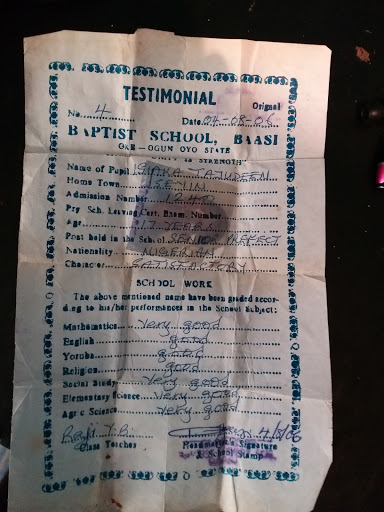 TESTIMONIAL
Orignal
No. 4 Date 04-08-06
BAPTIST SCHOOL, BAASI
OYO STATE
IS STRENGTH"
Name of Pupil TAJUDEEN
Home Town
Admission Number
Pry Sch. Leaving Cert. Exam. Number
Age 17 YEARS
Post held in the School SENIOR PREFECT
Nationality NIGERIAN
Character SATISFACTORY
SCHOOL WORK
The above mentioned name have been graded accor-
ding to his/her performances in the School Subject:
Mathematics Very good
English good
Yoruba good
Religion good
Social Study Very good
Elementary Science Very good
Agric Science Very good
Class Teacher
Headmaster's Signature
& School Stamp